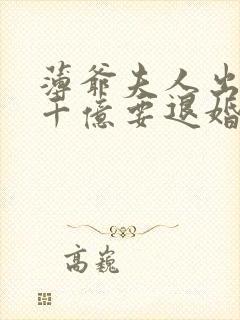 薄爷夫人出
十億要退婚
高巍